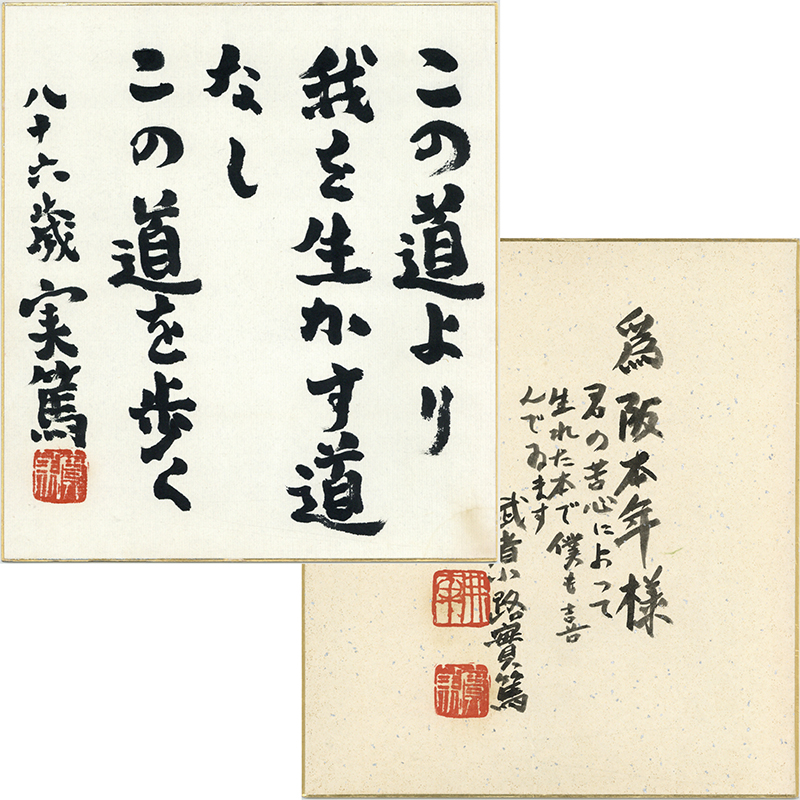 この道より
我を生かす道
なし
この道を歩く
八十六歳 実篤
為 阪本年様
君の苦心によって
生れた本で僕も喜
んでゐます
武者小路實篤